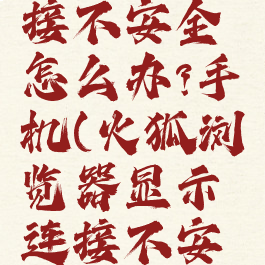 接不安全
怎么办?手
机(火狐浏
览器显示
连接不安